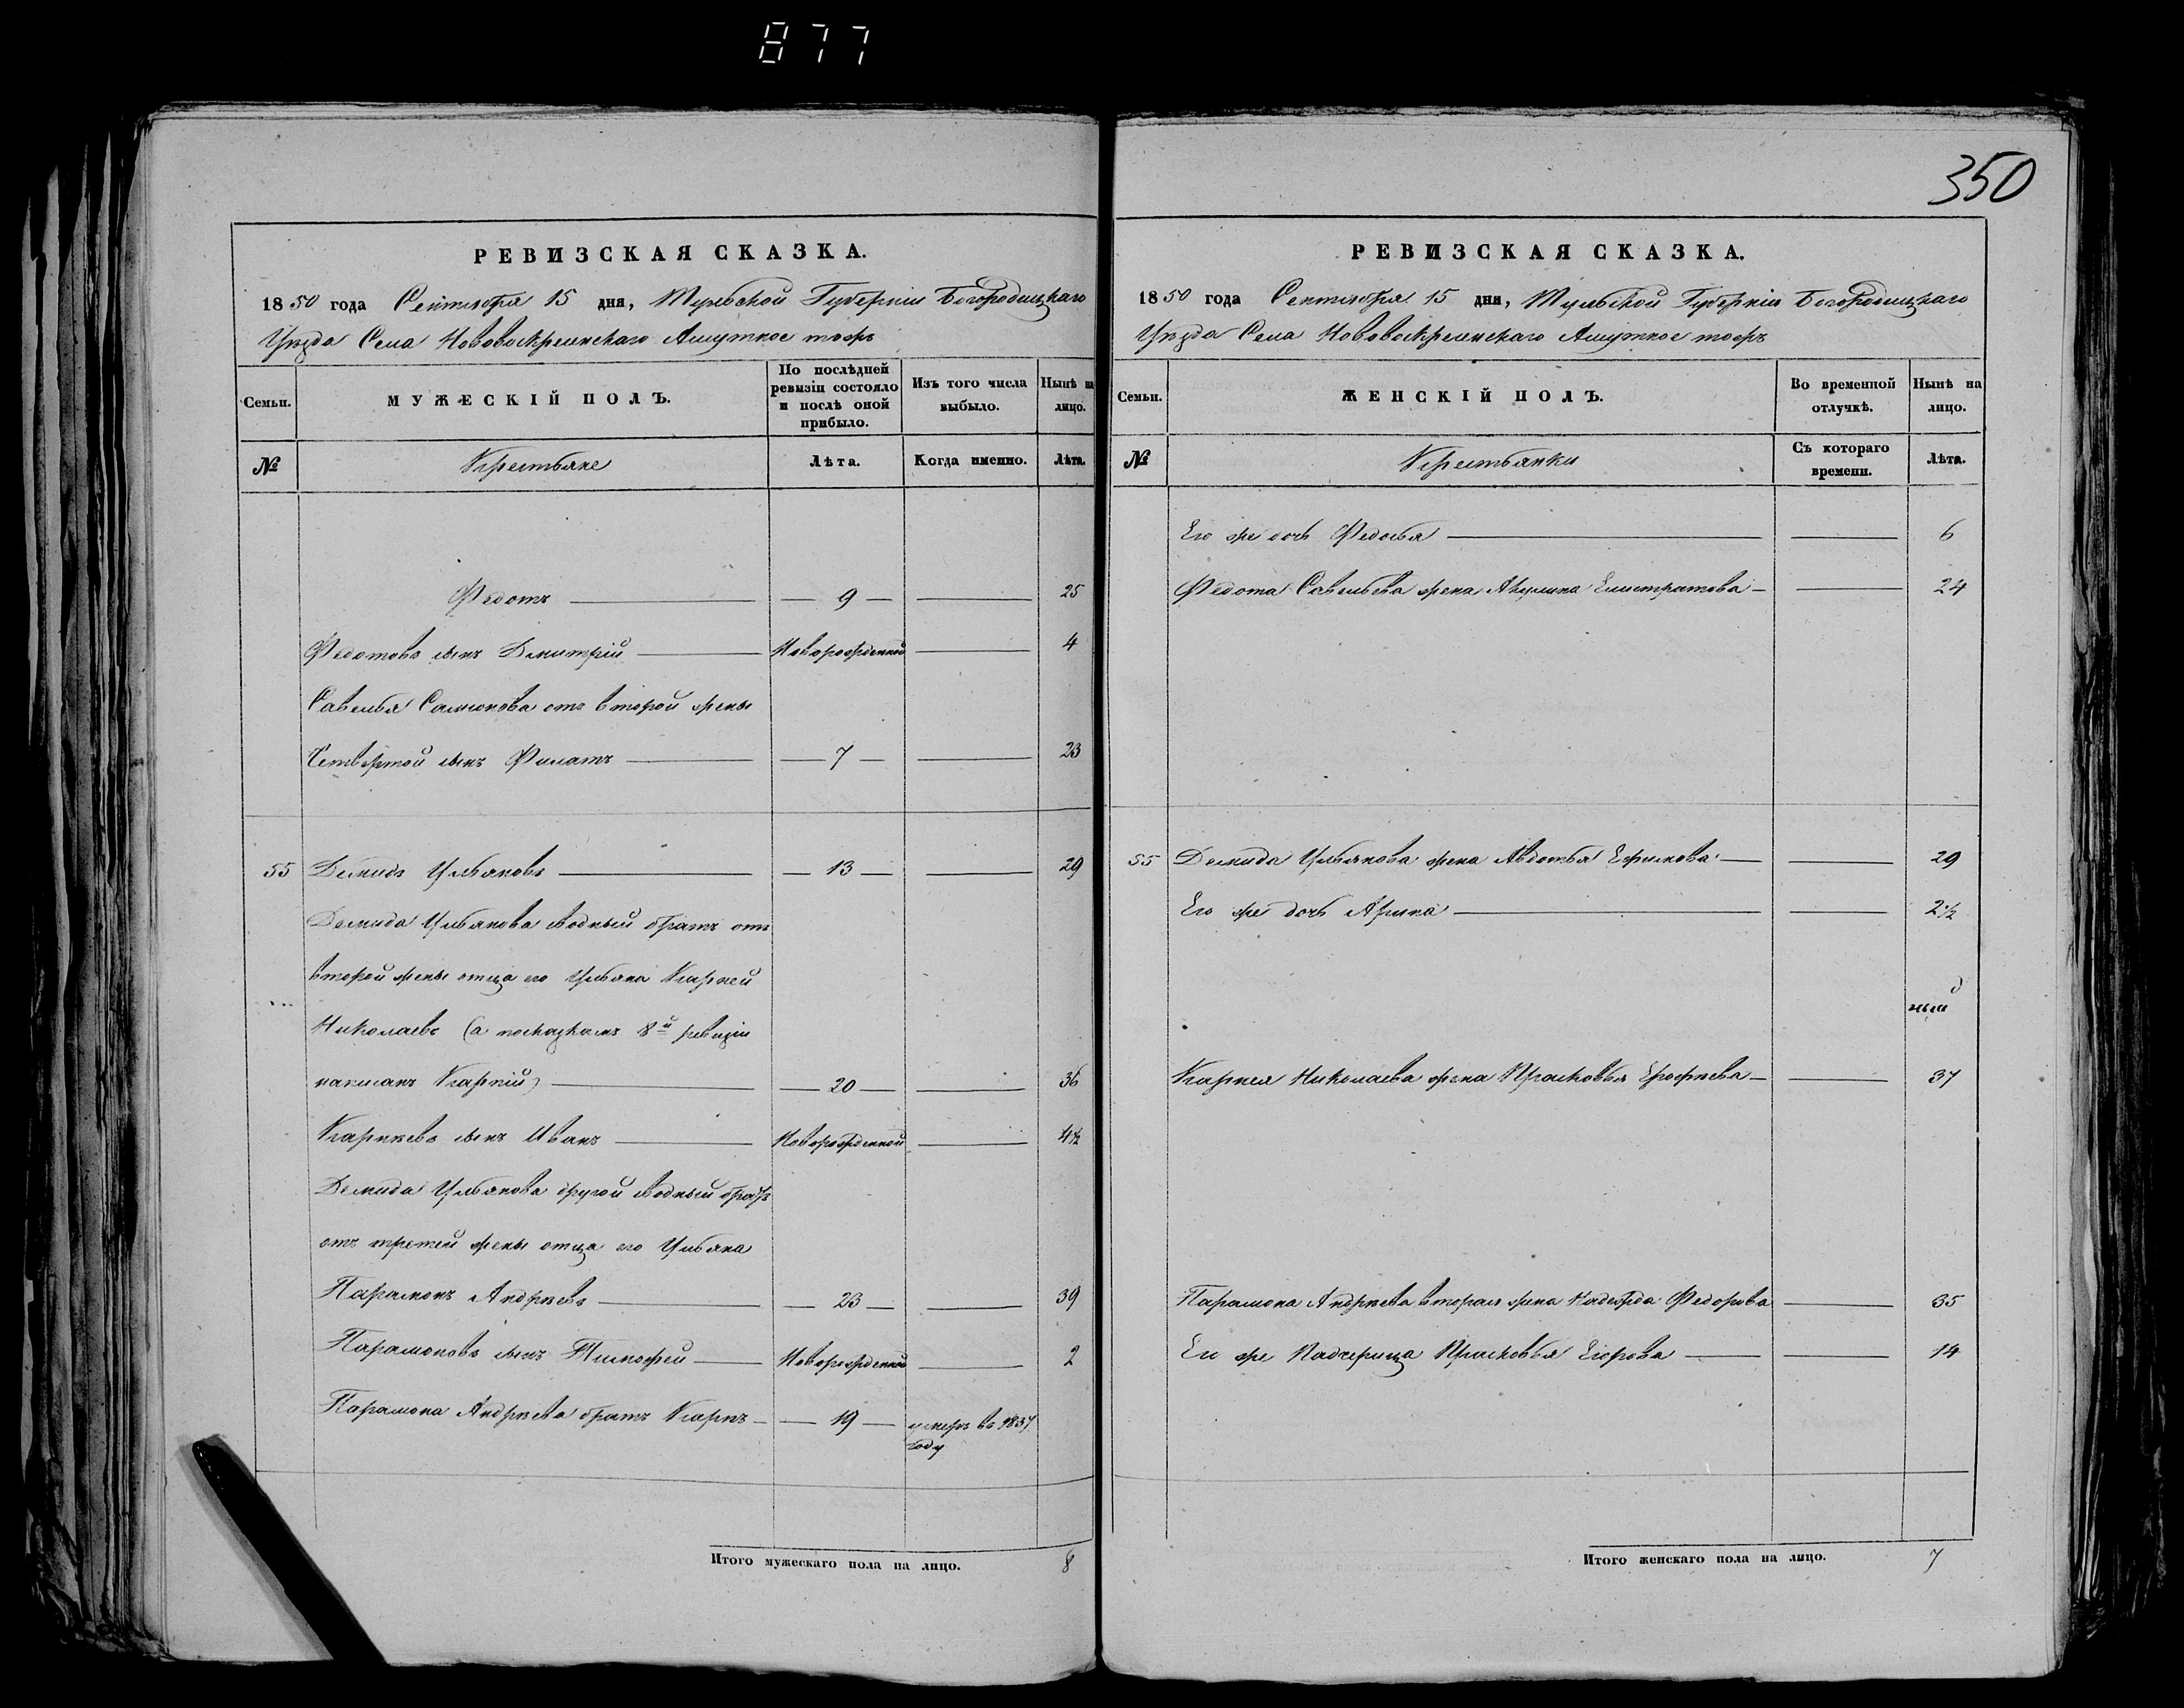 877
350
РЕВИЗСКАЯ СКАЗКА.
1850 года Сентября 15 дня, Тульской Губерніи Богородицкаго
Уѣзда Села Нововоскресенскаго Ашутное тожъ
Семьи.
МУЖЕСКІЙ ПОЛЪ.
По послѣдней ревизіи состояло и послѣ оной прибыло.
Изъ того числа выбыло.
Нынѣ на лицо.
№
Крестьяне
Лѣта.
Когда именно.
Лѣта.
Федотъ — 9 — 25
Федотовъ сынъ Дмитрій Новорожденной 4
Савелья Самсонова отъ второй жены
Четвертой сынъ Филатъ — 7 — 23
55 Демидъ Ульяновъ — 13 — 29
Демида Ульянова сводный братъ отъ
второй жены отца его Ульяна Карней
Николаевъ (а посказкамъ 8й ревизіи
написанъ Карпій) — 20 — 36
Карнѣевъ сынъ Иванъ Новорожденной 4½
Демида Ульянова другой сводный братъ
отъ третей жены отца его Ульяна
Парамонъ Андрѣевъ — 23 — 39
Парамоновъ сынъ Тимофей Новорожденной 2
Парамона Андрѣева братъ Карпъ — 19 — умеръ въ 1837
году
Итого мужескаго пола на лицо. 8
РЕВИЗСКАЯ СКАЗКА.
1850 года Сентября 15 дня, Тульской Губерніи Богородицкаго
Уѣзда Села Нововоскресенскаго Ашутное тожъ
Семьи.
ЖЕНСКІЙ ПОЛЪ.
Во временной отлучкѣ.
Нынѣ на лицо.
№
Крестьянки
Съ котораго времени.
Лѣта.
Его же дочь Федосья 6
Федота Савельева жена Акулина Елистратова 24
55 Демида Ульянова жена Авдотья Ефимова 29
Его же дочь Арина 2½
ный
Карнея Николаева жена Прасковья Ерофѣева 37
Парамона Андрѣева вторая жена Надежда Федорова 35
Его же Падчерица Прасковья Егорова 14
Итого женскаго пола на лицо. 7